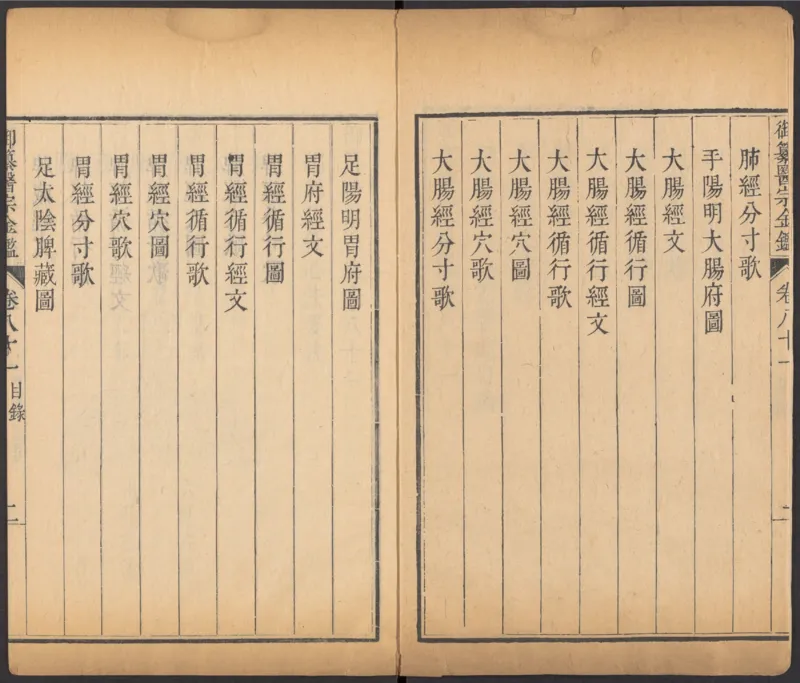 御纂醫宗金鑑 卷八十一
肺經分寸歌
手陽明大腸府圖
大腸經文
大腸經循行圖
大腸經循行經文
大腸經循行歌
大腸經穴圖
大腸經穴歌
大腸經分寸歌
足陽明胃府圖
胃府經文
胃經循行圖
胃經循行經文
胃經循行歌
胃經穴圖
胃經穴歌
胃經分寸歌
足太陰脾藏圖
御纂醫宗金鑑 卷八十一 目錄 二